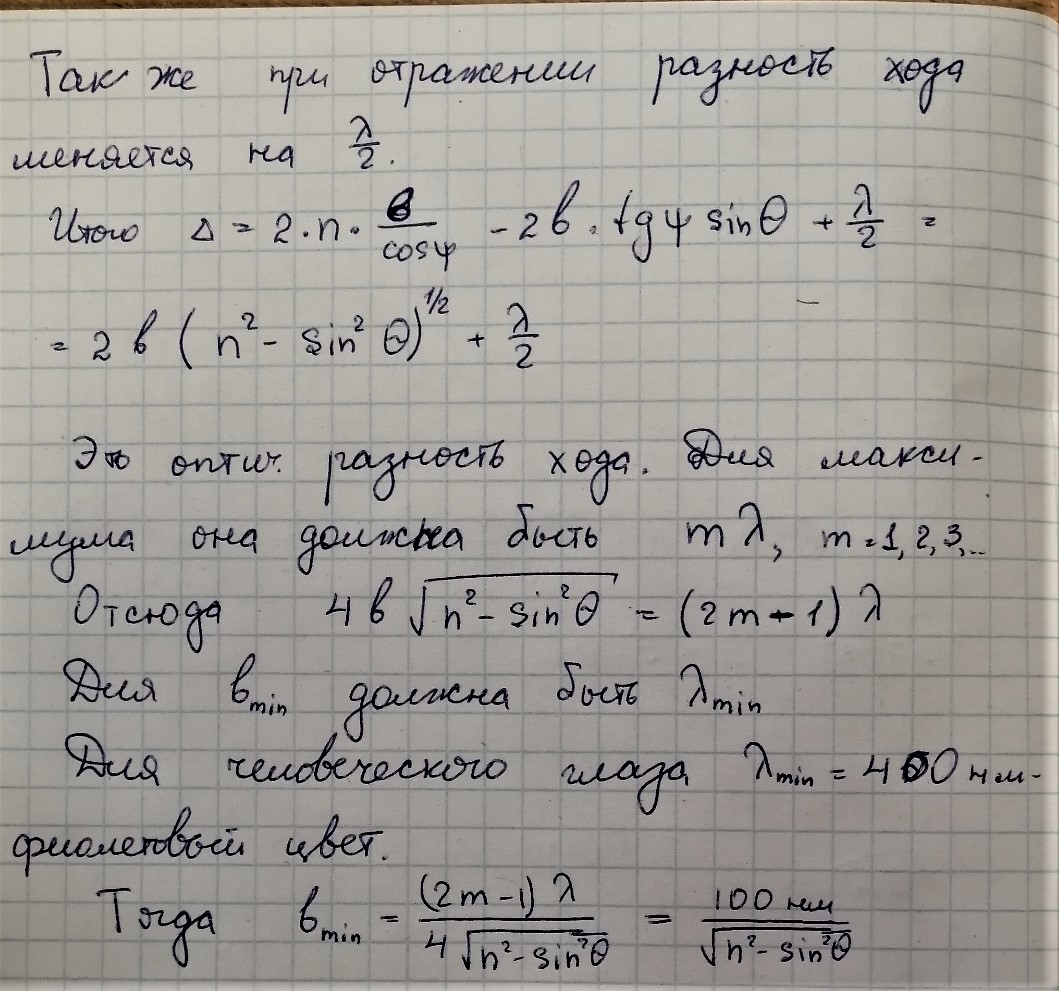 Так же при отражении разность хода
меняется на λ/2.
Итого Δ = 2·n· b/cosψ - 2b · tgψ sinθ + λ/2 =
= 2b (n² - sin² θ)^1/2 + λ/2
Это оптич. разность хода. Для макси-
мума она должна быть mλ, m=1,2,3,..
Отсюда 4b √(n² - sin²θ) = (2m - 1) λ
Для bmin должна быть λmin
Для человеческого глаза λmin = 400 нм -
фиолетовый цвет.
Тогда bmin = (2m-1) λ / 4√(n²-sin²θ) = 100 нм / √(n²-sin²θ)